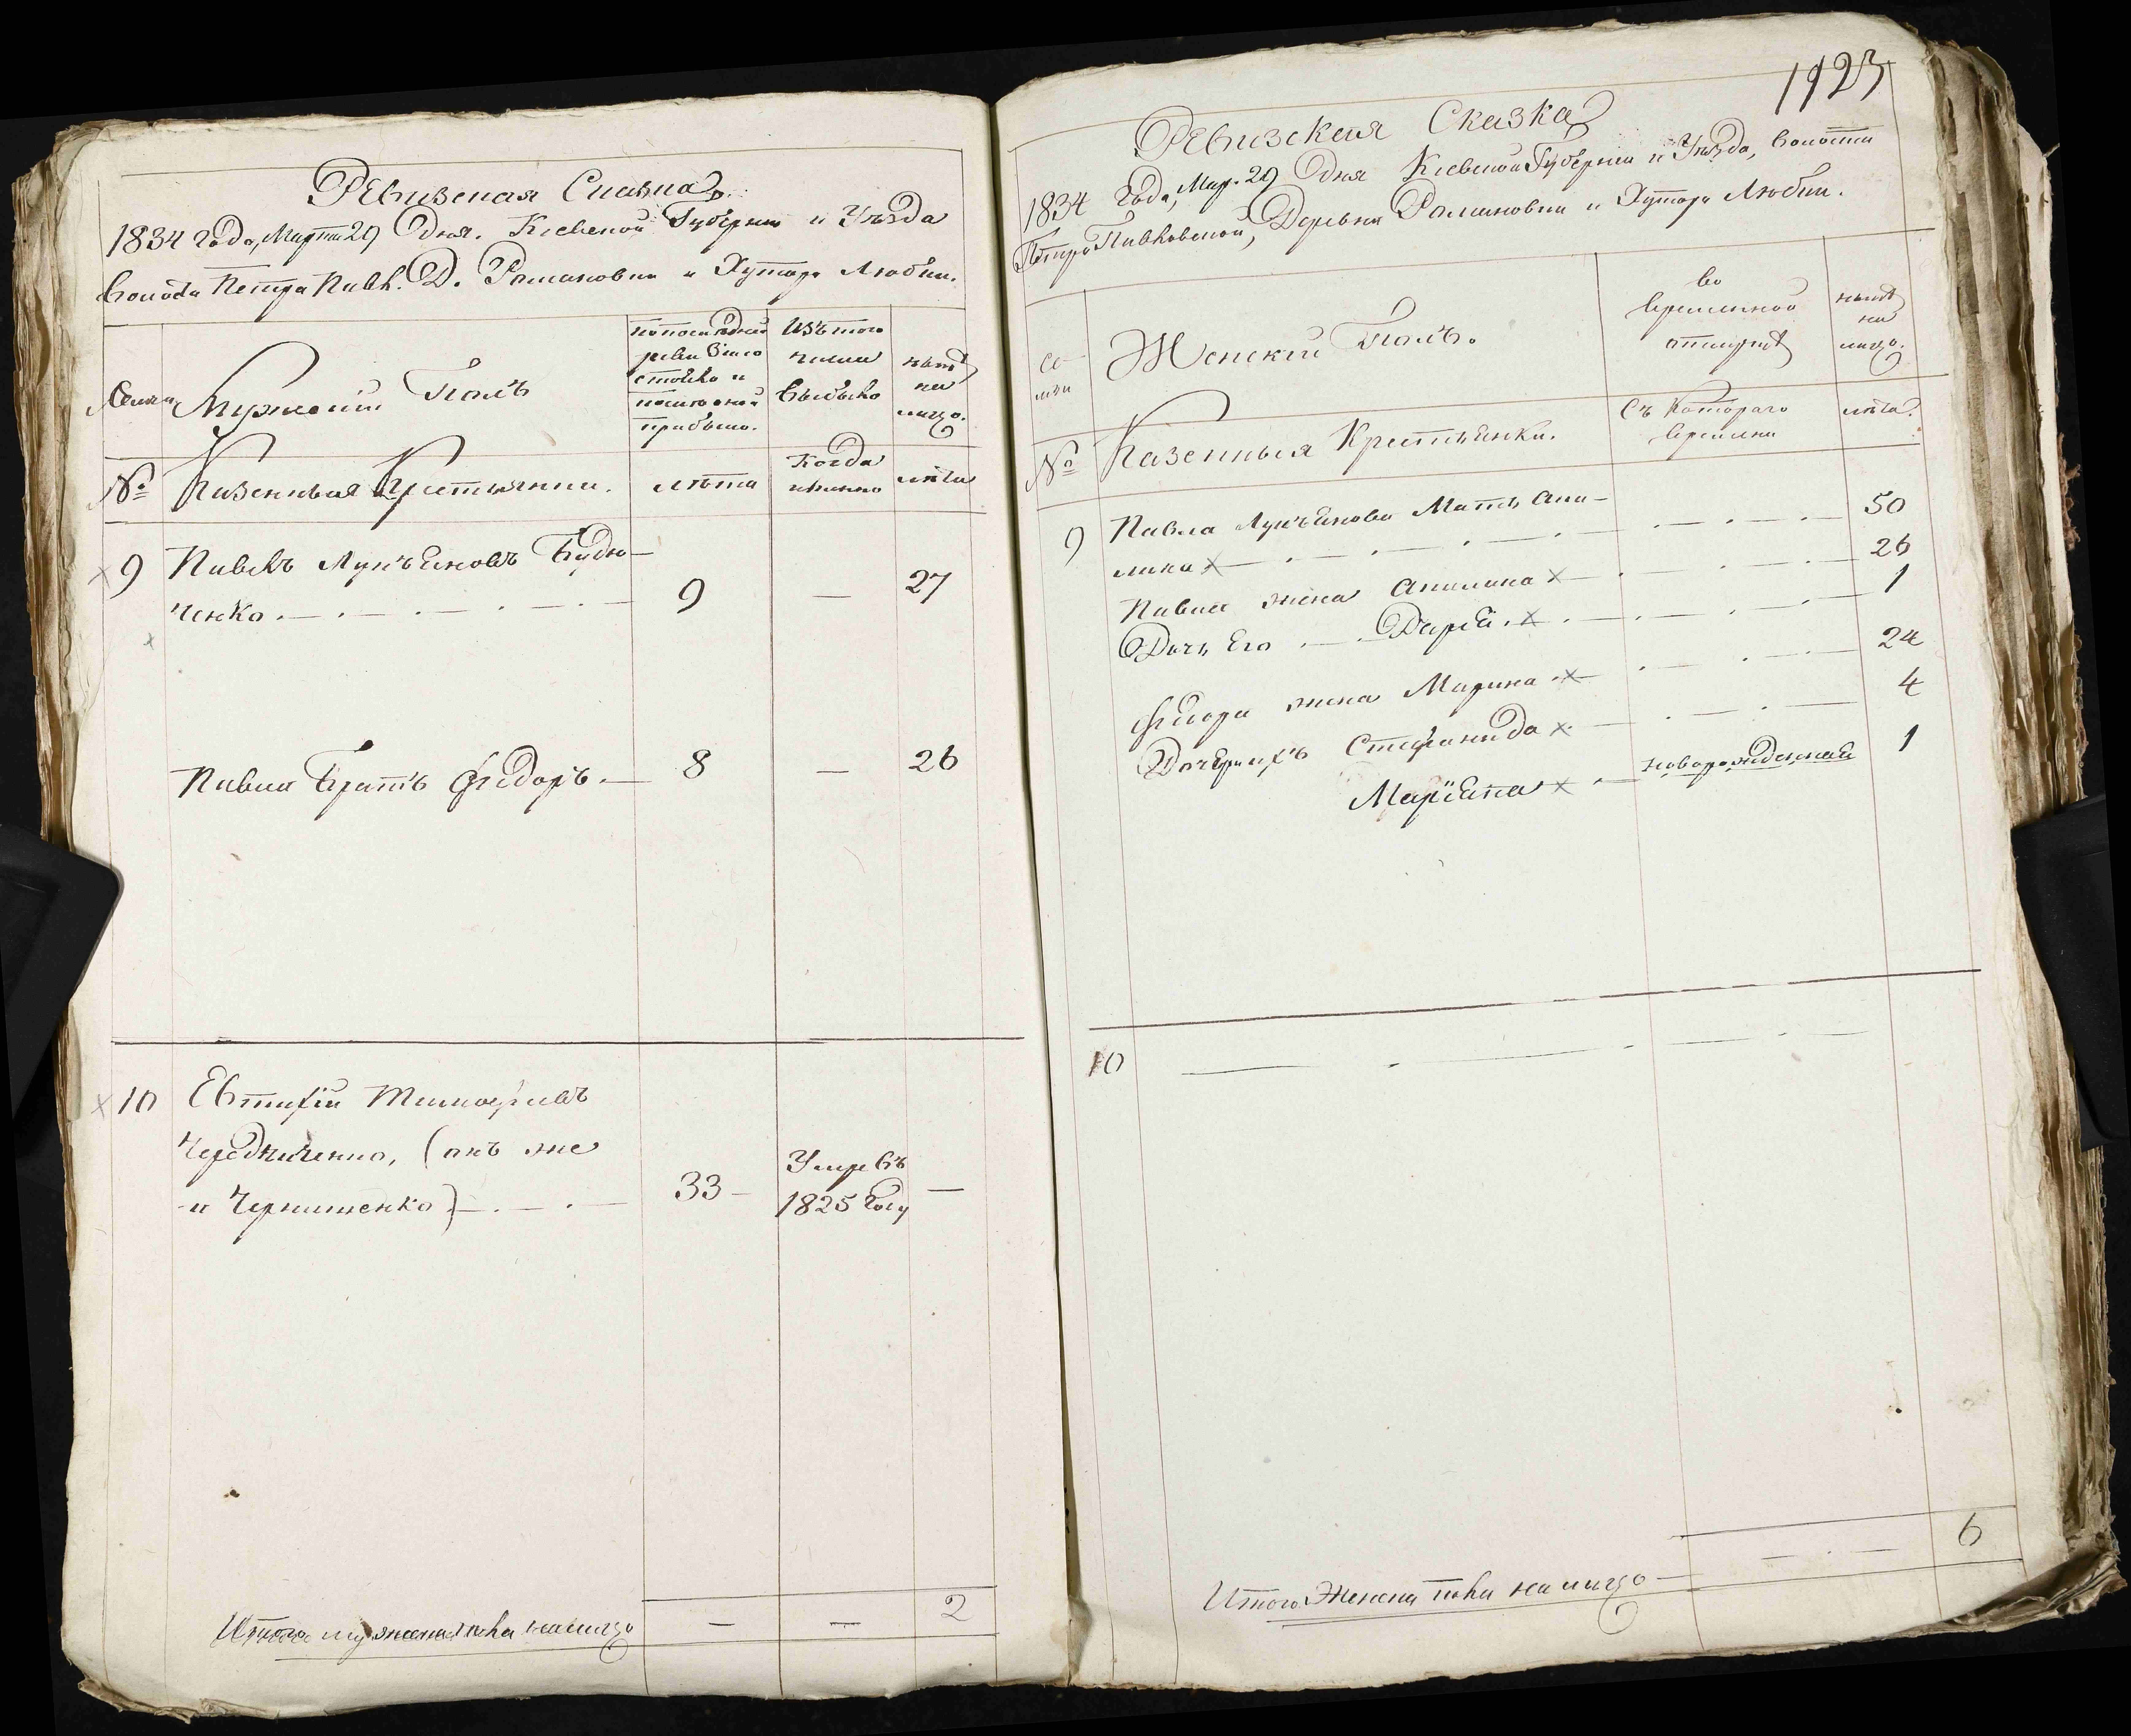 Ревизская Сказка
1834 года, Марта 29 Дня. Кіевской Губерніи и Уѣзда
Волости Петро Павл. Д. Романовки и Хутора Любки.
Семьи
Мужескій Полъ
по последней
ревизіи
состояло и
после оной
прибыло.
Изъ того
числа
выбыло
нынѣ
на
лицо.
№
Казенныя Крестьянии.
лѣта
Когда
именно
лѣта
9 Павелъ Лукъяновъ Будни-
ченко 9 — 27
Павла Братъ Федоръ. — 8 — 26
10 Евтихій Тимофеевъ
Чередниченко, (онъ же
и Чернишенко) 33 — Умре въ
1825 году —
Итого мужеска пола налицо — — 2
1123
Ревизская Сказка
1834 года, Мар. 29 Дня Кіевской Губерніи и Уѣзда, Волости
Петро Павловской, Деревни Романовки и Хутора Любки.
Се-
мьи
Женскій Полъ.
во
временной
отлучкѣ
нынѣ
на
лицо.
№
Казенныя Крестьянки.
Съ котораго
времени
лѣта.
9 Павла Лукъянова Мать Аки-
лина 50
Павла жена Акилина 26
Дочь Его Дарья 1
Федора жена Марина 24
Дочери ихъ Стефанида 4
Маріанa новорожденная 1
10
Итого Женска пола на лицо 6